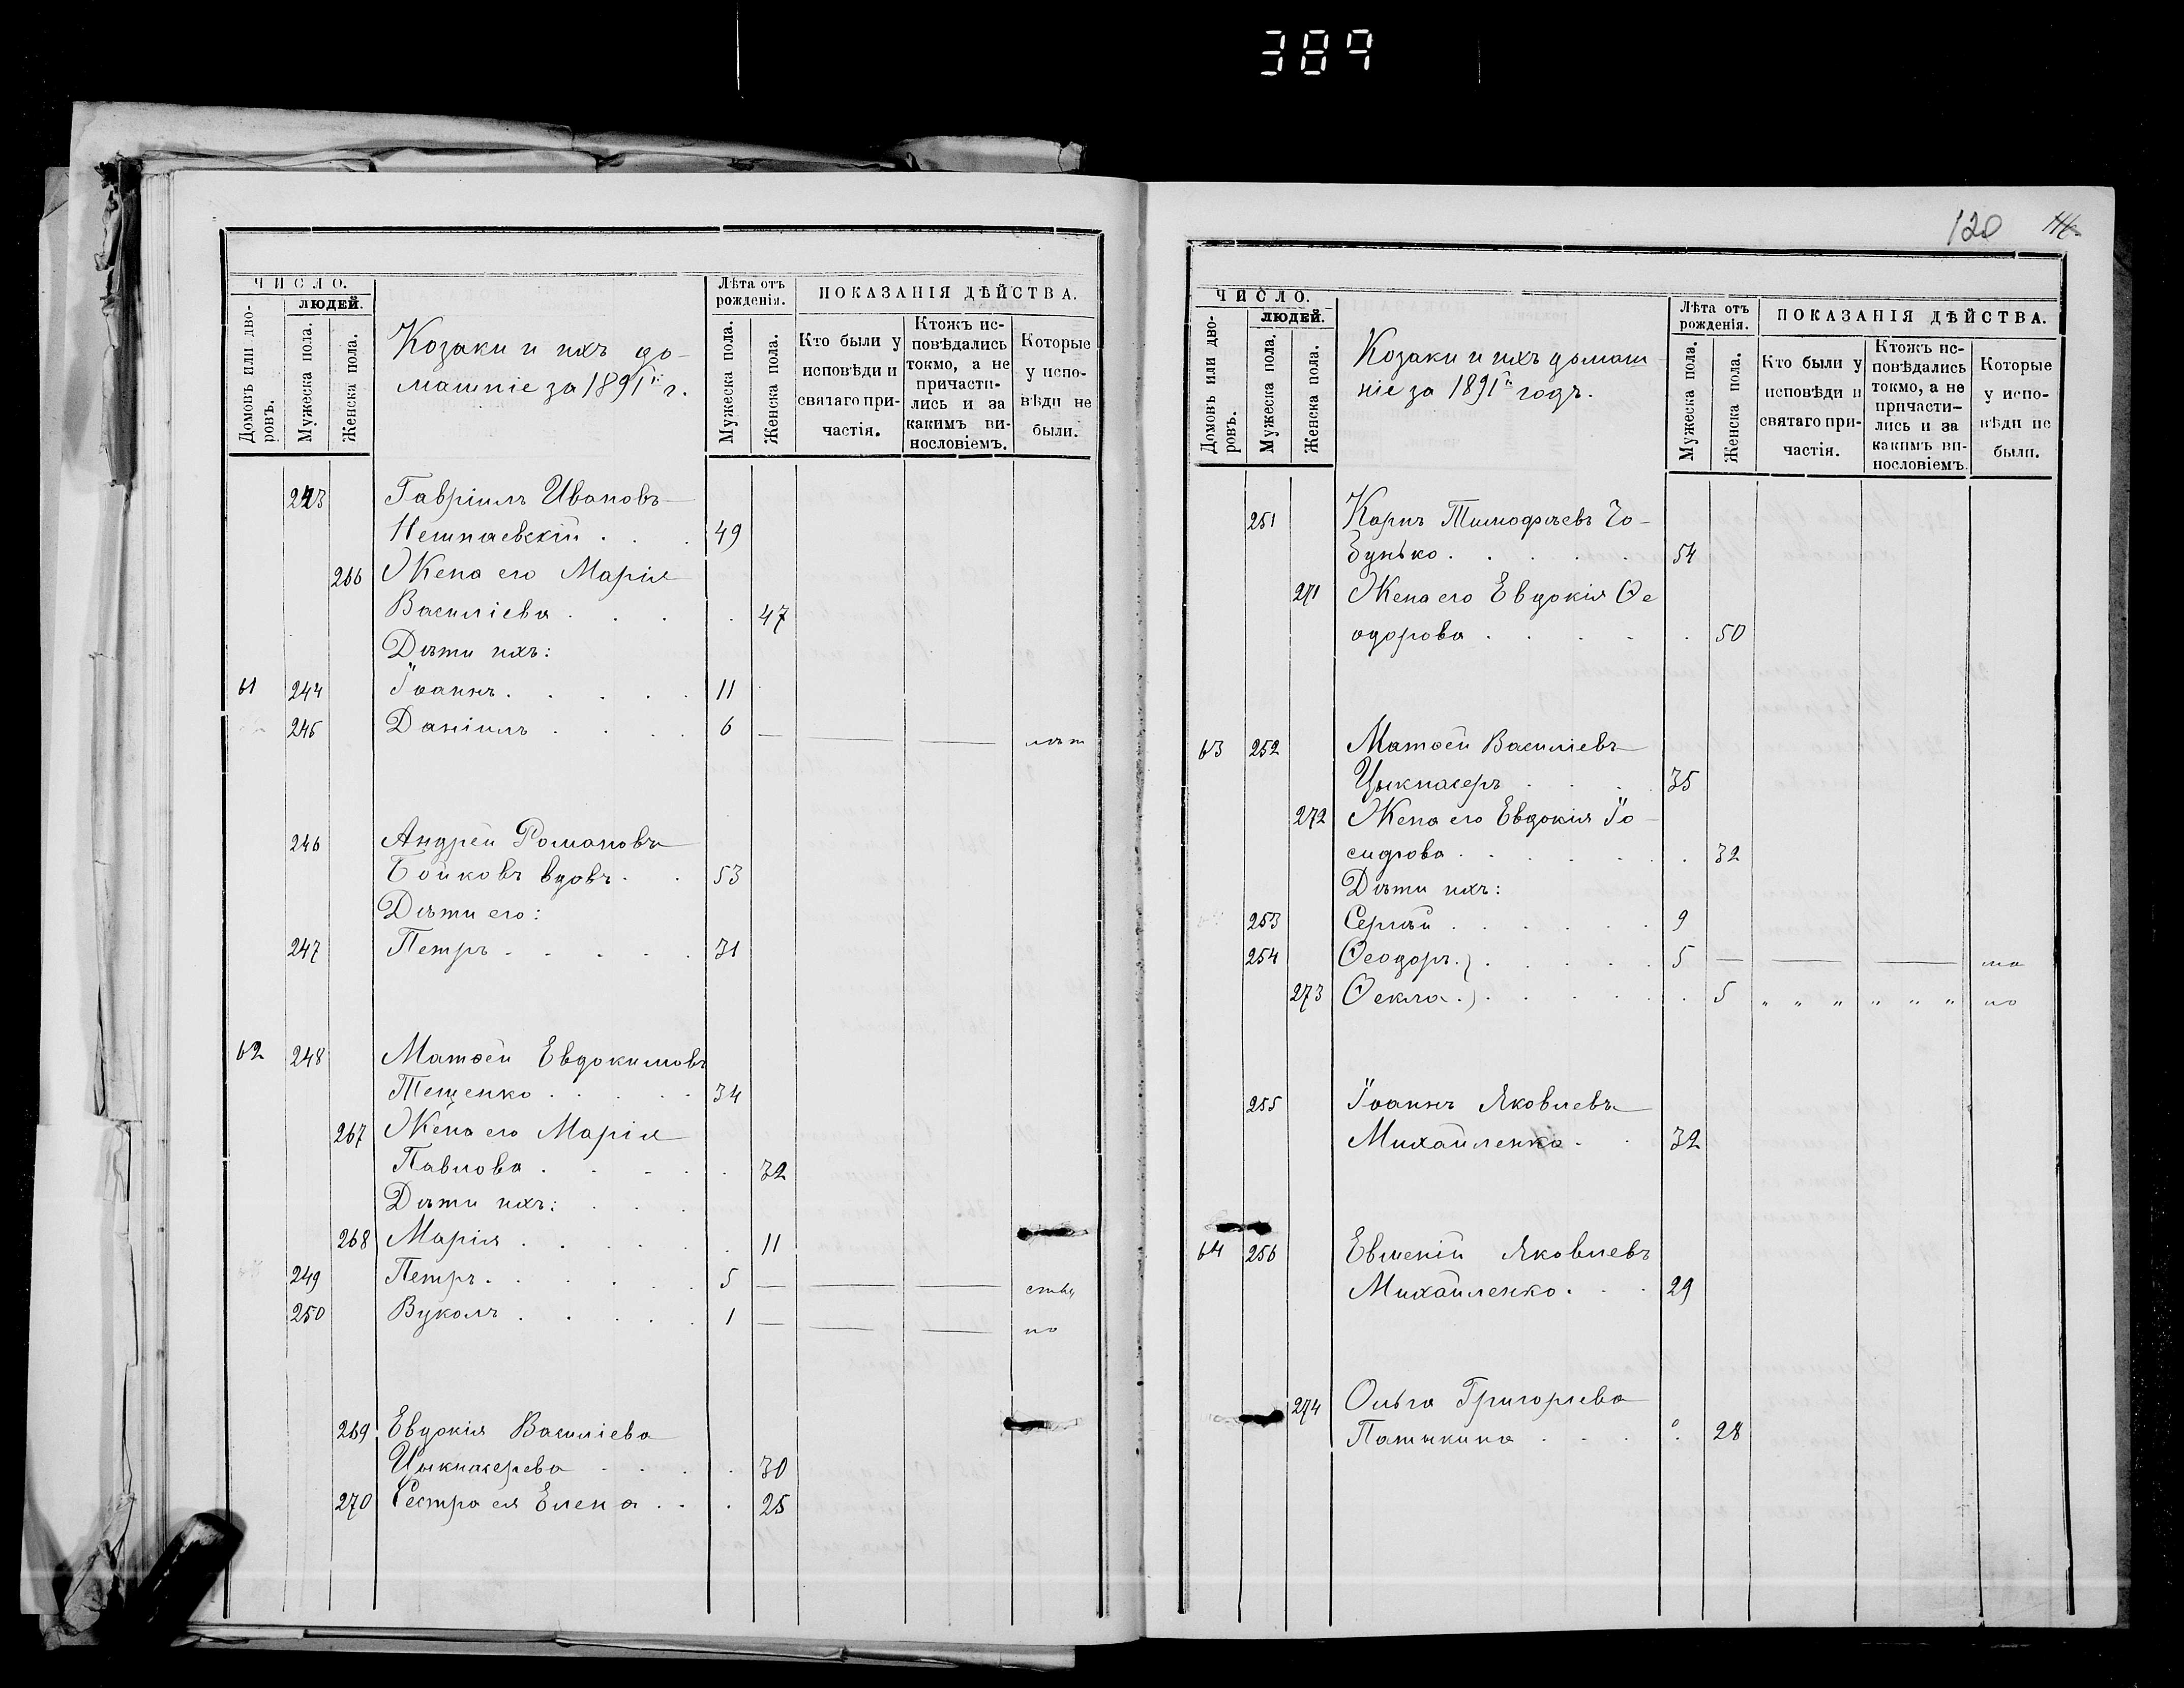 389
ЧИСЛО.
ЛЮДЕЙ.
Домовъ или дворовъ.
Мужеска пола.
Женска пола.
Козаки и ихъ до-
машніе за 1891й г.
Лѣта отъ рожденія.
Мужеска пола.
Женска пола.
ПОКАЗАНІЯ ДѢЙСТВА.
Кто были у исповѣди и святаго причастія.
Ктожъ исповѣдались токмо, а не причастились и за какимъ винословіемъ.
Которые у исповѣди не были.
243 Гавріилъ Ивановъ
49
266 Жена его Марія
Василіева . . . . 47
Дѣти ихъ:
61 244 Іоаннъ . . . . . 11
245 Даніилъ . . . . 6 — — — лѣт
246 Андрей Романовъ
Бойковъ вдовъ . . 53
Дѣти его:
247 Петръ . . . . . 31
62 248 Матѳей Евдокимовъ
Тещенко . . . . . 34
267 Жена его Марія
Павлова . . . . . 32
Дѣти ихъ: . . .
268 Марія . . . . . . 11
249 Петръ . . . . . . 5 — — — ству
250 Вуколъ . . . . . 1 — — — по
269 Евдокія Василіева
Цыкнасерева . . . . 30
270 Сестра ея Елена . . . 25
120
ЧИСЛО.
ЛЮДЕЙ.
Домовъ или дворовъ.
Мужеска пола.
Женска пола.
Козаки и ихъ домаш-
ніе за 1891й годъ.
Лѣта отъ рожденія.
Мужеска пола.
Женска пола.
ПОКАЗАНІЯ ДѢЙСТВА.
Кто были у исповѣди и святаго причастія.
Ктожъ исповѣдались токмо, а не причастились и за какимъ винословіемъ.
Которые у исповѣди не были.
251 Карпъ Тимофѣевъ
54
271 Жена его Евдокія Ѳе
одорова . . . . . . 50
63 252 Матѳей Василіевъ
Цыкнасеръ . . . . 35
272 Жена его Евдокія Іо-
сифова . . . . . . . 32
Дѣти ихъ:
253 Сергѣй . . . . . . 9
254 Ѳеодоръ.) . . . . . 5 — — — ма
273 Ѳекла.) . . . . . . 5 „ „ „ „ „ „ ло
255 Іоаннъ Яковлевъ
Михайленко . . 32
64 256 Евменій Яковлевъ
Михайленко . . . 29
274 Ольга Григоріева
Патыкина . . . . . 28